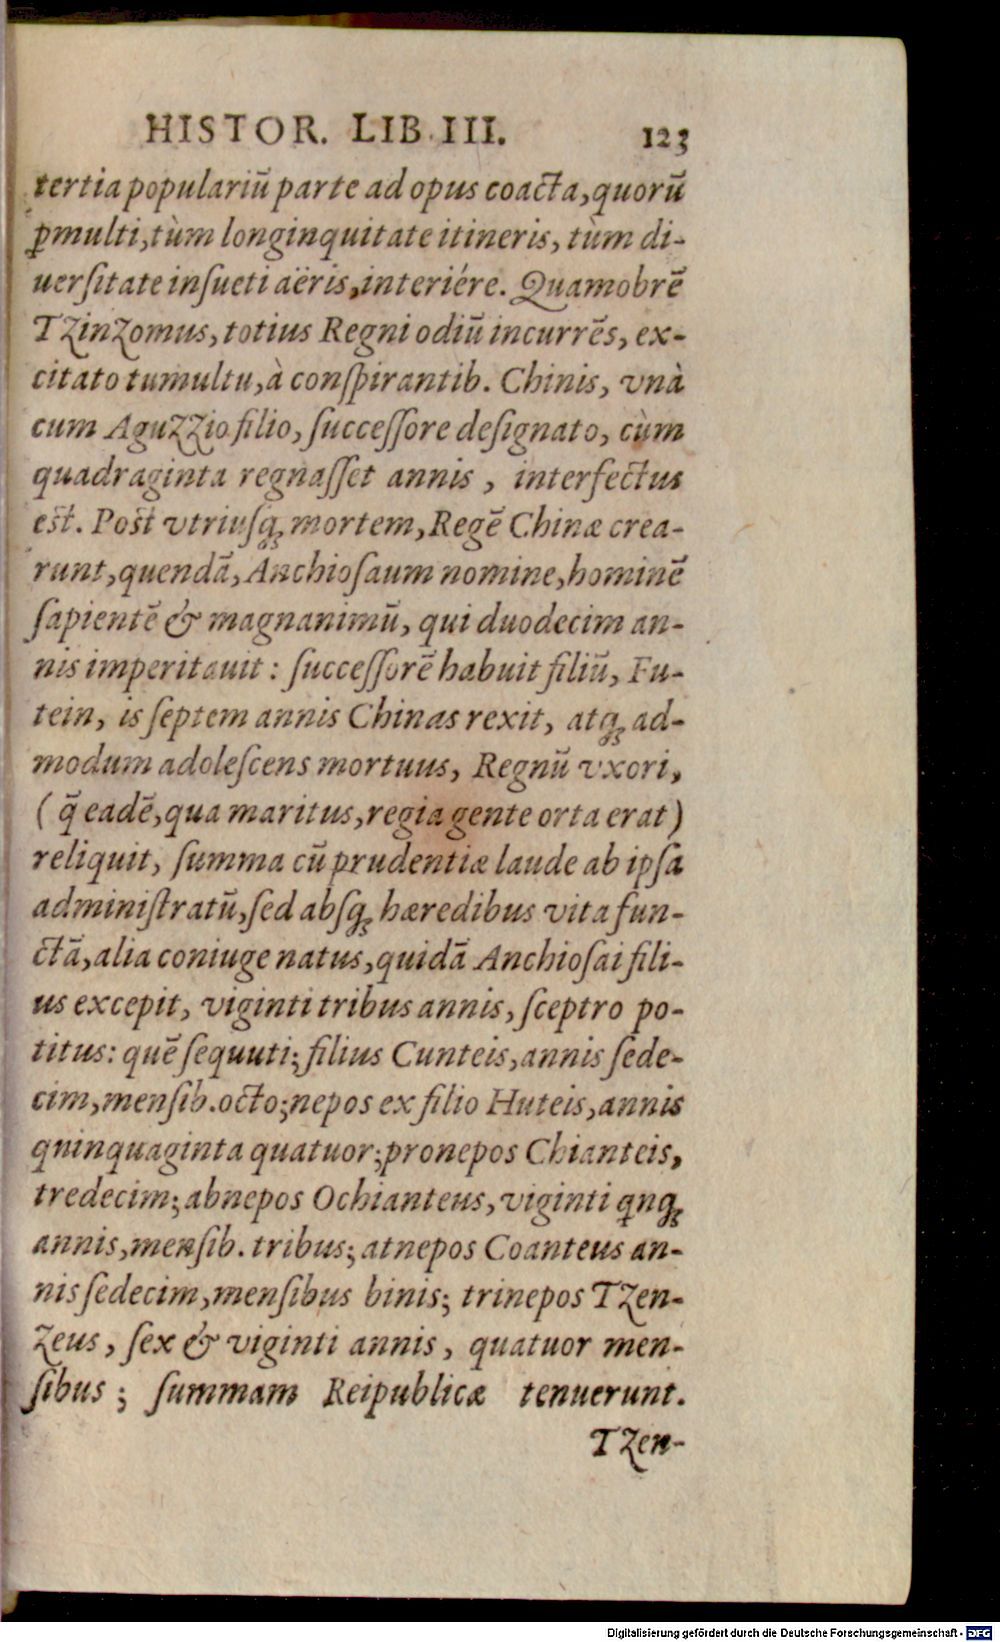 HISTOR. LIB. III. 123
tertia populariũ parte ad opus coacta, quorũ
ꝑmulti, tùm longinquitate itineris, tùm di-
uerſitate inſueti aëris, interiére. Quamobrẽ
TZinZomus, totius Regni odiũ incurrẽs, ex-
citato tumultu, à conſpirantib. Chinis, vnà
cum AguZZio filio, ſucceſſore deſignato, cùm
quadraginta regnaſſet annis, interfectus
est. Post vtriuſq; mortem, Regẽ Chinæ crea-
runt, quendã, Anchioſaum nomine, hominẽ
ſapientẽ & magnanimũ, qui duodecim an-
nis imperitauit: ſucceſſorẽ habuit filiũ, Fu-
tein, is ſeptem annis Chinas rexit, atq; ad-
modum adoleſcens mortuus, Regnũ vxori,
(q̃ eadẽ, qua maritus, regia gente orta erat)
reliquit, ſumma cũ prudentiæ laude ab ipſa
adminiſtratũ, ſed abſq; hæredibus vita fun-
ctã, alia coniuge natus, quidã Anchioſai fili-
us excepit, viginti tribus annis, ſceptro po-
titus: quẽ ſequuti; filius Cunteis, annis ſede-
cim, menſib. octo; nepos ex filio Huteis, annis
quinquaginta quatuor; pronepos Chianteis,
tredecim; abnepos Ochianteus, viginti qnq;
annis, menſib. tribus; atnepos Coanteus an-
nis ſedecim, menſibus binis; trinepos TZen-
Zeus, ſex & viginti annis, quatuor men-
ſibus; ſummam Reipublicæ tenuerunt.
TZen-
Digitalisierung gefördert durch die Deutsche Forschungsgemeinschaft - DFG